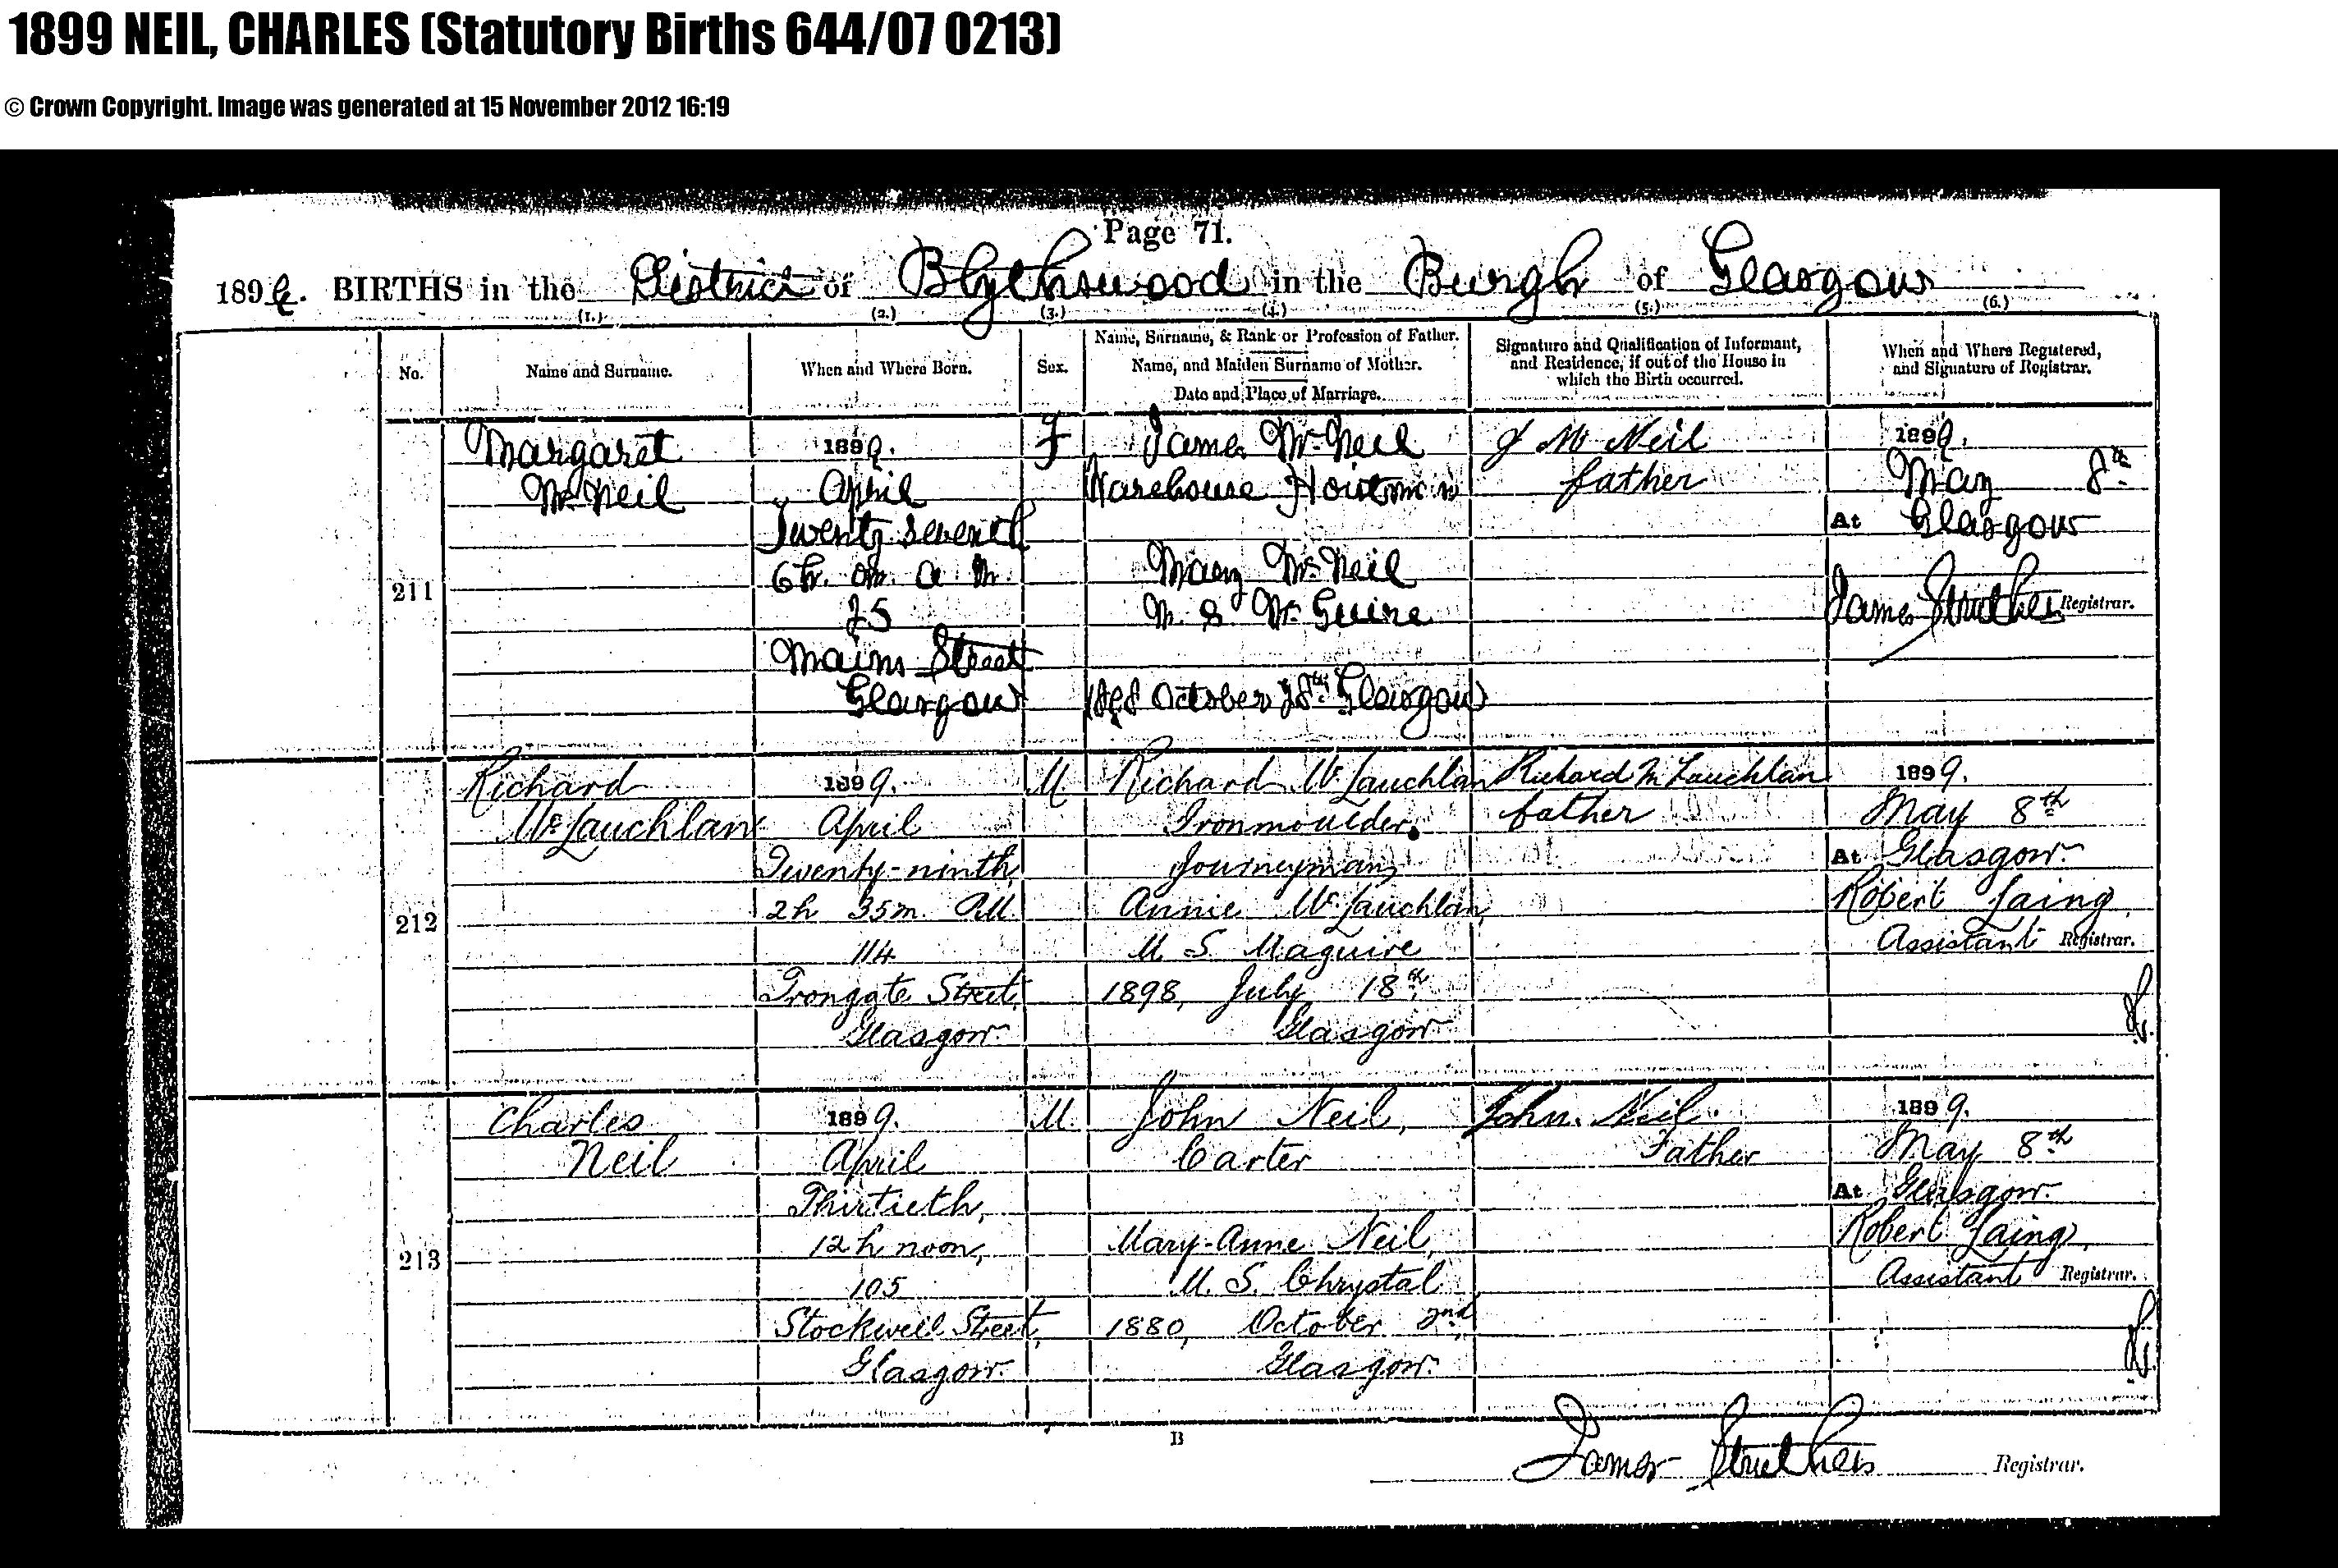 1899 NEIL, CHARLES (Statutory Births 644/07 0213)
© Crown Copyright. Image was generated at 15 November 2012 16:19
Page 71.
1899. BIRTHS in the District of Blythswood in the Burgh of Glasgow
(1.) (2.) (3.) (4.) (5.) (6.)
No.
Name and Surname.
When and Where Born.
Sex.
Name, Surname, & Rank or Profession of Father.
Name, and Maiden Surname of Mother.
Date and Place of Marriage.
Signature and Qualification of Informant,
and Residence, if out of the House in
which the Birth occurred.
When and Where Registered,
and Signature of Registrar.
211
Margaret
McNeil
1899.
April
Twenty seventh
6h. 0m. A M.
75
Mains Street
Glasgow
F
James McNeil
Warehouse Hoistman
Mary McNeil
M. S. McGuire
October 28th Glasgow
J McNeil
father
1899.
May 8th
At Glasgow
James Struthers Registrar.
212
Richard
McLauchlan
1899.
April
Twenty-ninth,
2h 35m. P.M.
114
Trongate Street,
Glasgow.
M.
Richard McLauchlan
Ironmoulder,
Journeyman,
Annie McLauchlan,
M. S. Maguire
1898, July 18th
Glasgow
Richard McLauchlan
father
1899.
May 8th
At Glasgow.
Robert Laing,
Assistant Registrar.
213
Charles
Neil
1899.
April
Thirtieth,
12h noon,
105
Stockwell Street,
Glasgow.
M.
John Neil,
Carter
Mary-Anne Neil,
M. S. Chrystal
1880, October 2nd,
Glasgow.
John. Neil.
Father
1899.
May 8th
At Glasgow.
Robert Laing,
Assistant Registrar.
B
James Struthers Registrar.